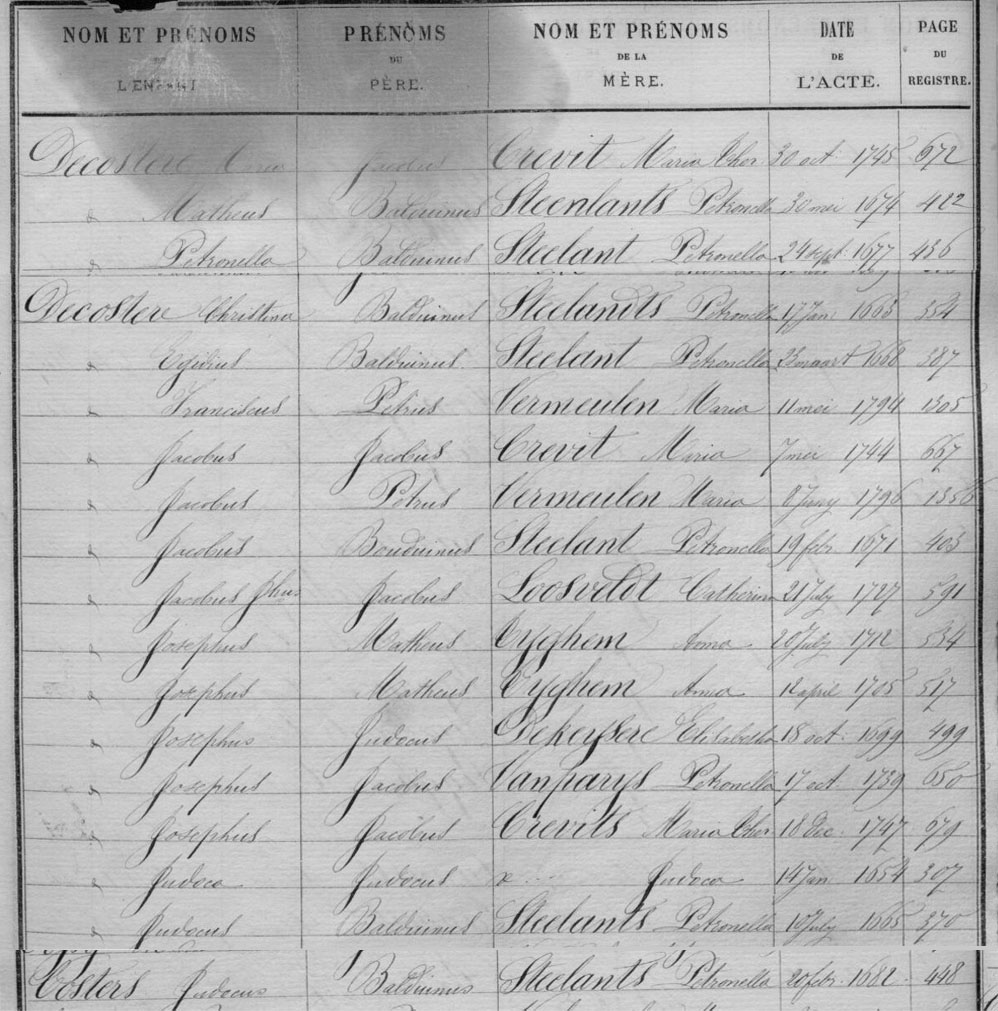 NOM ET PRÉNOMS PRÉNOMS NOM ET PRÉNOMS DATE PAGE
DE DU DE LA DE DU
L'ENFANT PÈRE. MÈRE. L'ACTE. REGISTRE.
Decostere Jacobus Crevit Maria Ther 30 oct. 1745 672
" Matheus Balduinus Steenlants Petronella 30 mei 1674 422
" Petronella Balduinus Steelant Petronella 24 sept. 1677 436
Decostere Christina Balduinus Steelandts Petronella 17 Jan 1663 354
" Egidius Balduinus Steelant Petronella 23 maart 1668 387
" Franciscus Petrus Vermeulen Maria 11 mei 1794 1305
" Jacobus Jacobus Crevit Maria 7 mei 1744 667
" Jacobus Petrus Vermeulen Maria 8 Juny 1796 1356
" Jacobus Bouduinus Steelant Petronella 19 febr 1671 403
" Jacobus Jhus Jacobus Loosveldt Catherina 21 July 1727 591
" Josephus Matheus Cyghem Anna 20 July 1712 534
" Josephus Matheus Cyghem Anna april 1705 517
" Josephus Judocus Dekeysere Elisabetha 18 oct. 1699 499
" Josephus Jacobus Vanparys Petronella 17 oct. 1739 650
" Josephus Jacobus Crevits Maria Ther 18 Dec. 1747 679
" Judoca Judocus x Judoca 14 Jan 1654 307
" Judocus Balduinus Steelants Petronella 10 July 1665 370
Costers Judocus Balduinus Steelants Petronella 20 febr. 1682 448